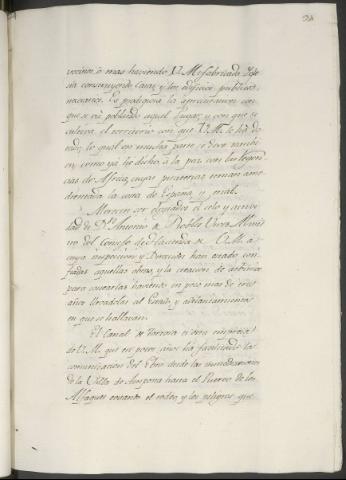 vecinos, ò mas haviendo V. M. fabricado Igle
sia construyendo casas, y los edificios publicos
necesarios. Es prodigiosa la apresuracion con
que se và poblando aquel Lugar, y con que se
cultiva el territorio con que V. M. le ha do
tado, lo qual en mucha parte se deve tambien
como yà he dicho à la paz con las Regen
cias de Africa, cuyas piraterias tenian ame
drentada la costa de España, y
Merecen ser elogiados el celo y activi
dad de Dn. Antonio de Robles Vives Minis
tro del Consejo de Hacienda de V. M. à
cuya inspeccion y Direccion han estado con
fiadas aquellas obras, y la creacion de arbitrios
para costearlas haviendo en poco mas de tres
años llevadolas al Estado, y adelantamiento
en que se hallavan.
El Canal de Tortosa es otra empresa
de V. M. que en pocos años ha facilitado la
comunicacion del Ebro desde las inmediaciones
de la Villa de Amposta hasta el Puerto de los
Alfaques evitando el rodeo, y los peligros que